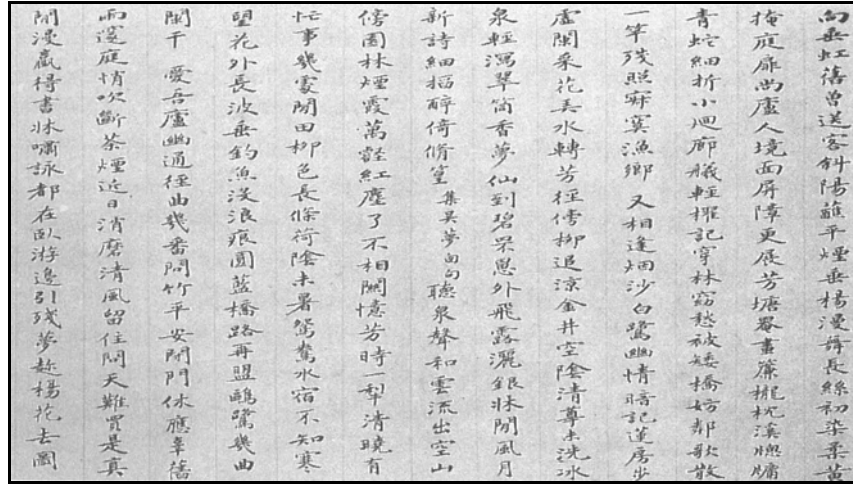 向垂虹舊曾送客斜陽蘸平煙垂楊漫舞長絲初染柔黃
掩庭扉蝸廬人境面屏障更展芳塘罨畫簾櫳枕溪牕牖
青蛇細折小迴廊艤輕櫂記穿林窈愁被矮橋妨鄰歌散
一竿殘照寂寞漁鄉 又相逢烟沙白鷺幽情暗記蓮房步
虛閣采花弄水轉芳徑傍柳追涼金井空陰清尊未洗冰
泉輕瀉翠筒香夢仙到碧罘罳外飛露灑銀牀閒風月
新詩細搯醉倚脩篁 集吳夢窗句 聽泉聲和雲流出空山
傍園林煙霞萬壑紅塵了不相關憶芳時一犁清曉有
忙事幾處閒田柳色長條荷陰未暑鴛鴦水宿不知寒
望花外長波垂釣魚沒浪痕圓藍橋路再盟鷗鷺幾曲
闌干 愛吾廬幽通徑曲幾番問竹平安閉門休應辜舊
雨邃庭悄吹斷茶煙近日消磨清風留住問天難買是真
閒漫贏得書牀嘯詠都在臥游邊引殘夢趁楊花去圖